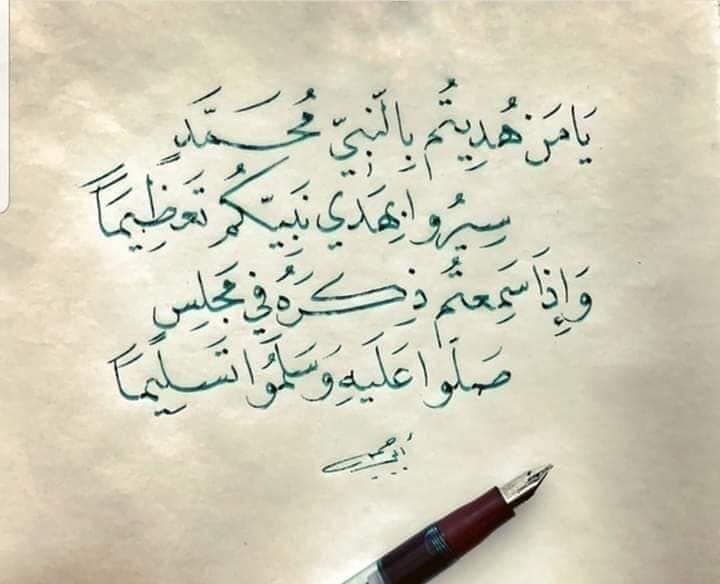 يَا مَن هُدِيتُم بِالنَّبِيِّ مُحَمَّدٍ
سِيرُوا بِهَدي نَبِيّكُم تَعَظِيمَاً
وَإِذَا سَمِعتُم ذِكرَهُ في مَجلِسٍ
صَلّوا عَلَيهِ وَسَلِّمُوا تَسلِيمَاً